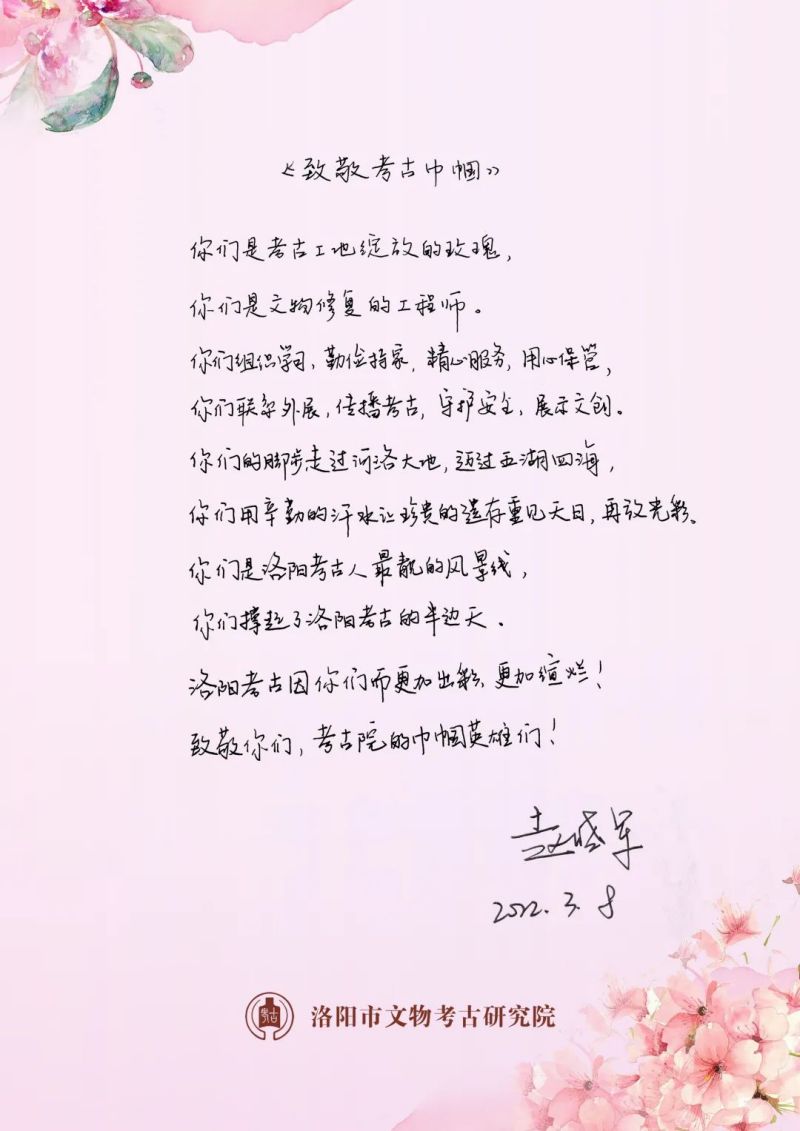 《致敬考古巾帼》
你们是考古工地绽放的玫瑰，
你们是文物修复的工程师。
你们组织学习，勤俭持家，精心服务，用心保管，
你们联系外展，传播考古，守护安全，展示文创。
你们的脚步走过河洛大地，迈过五湖四海，
你们用辛勤的汗水让珍贵的遗存重见天日，再放光彩。
你们是洛阳考古人最靓的风景线，
你们撑起了洛阳考古的半边天。
洛阳考古因你们而更加出彩、更加绚烂！
致敬你们，考古院的巾帼英雄们！
赵晓军
2022.3.8
考古
洛阳市文物考古研究院